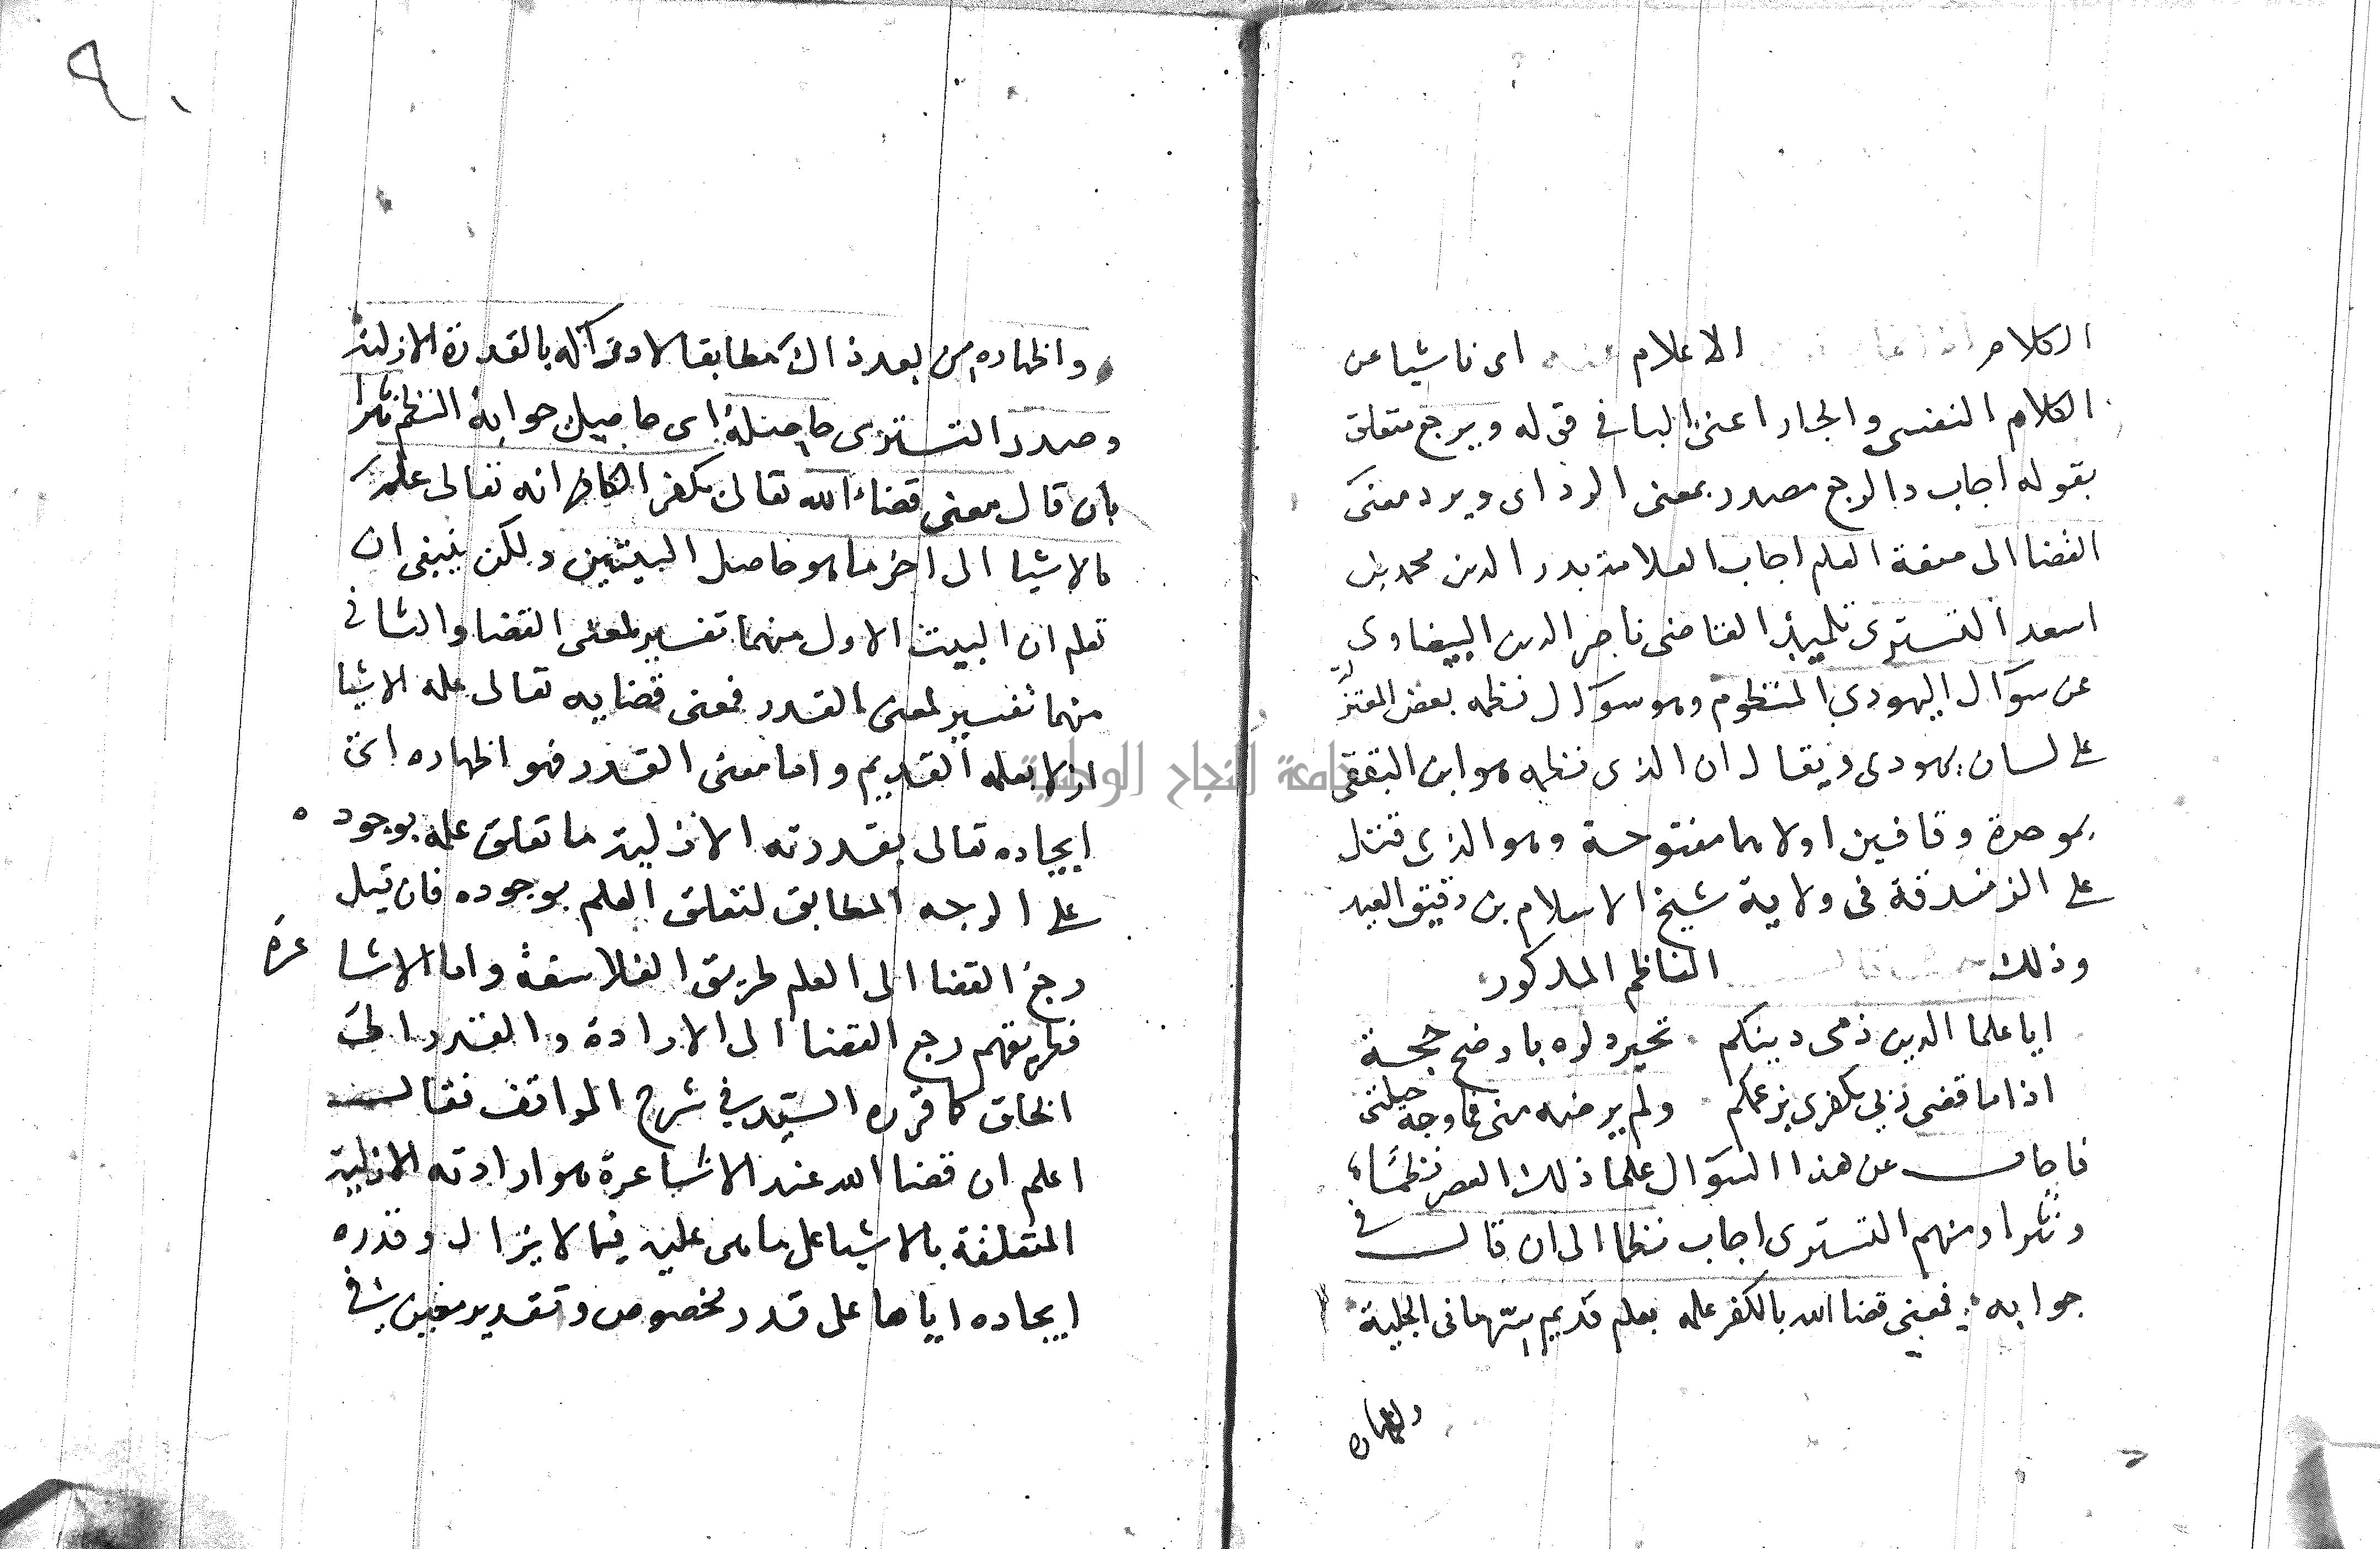 الكلام الاعلام اى ناشيا عن
الكلام النفسى والجار اعنى البا فى قوله ويرجع متعلق
بقوله اجاب والرجع مصدر بمعنى الرد اى ويرد معنى
القضا الى صفة العلم اجاب العلامة بدر الدين محمد بن
اسعد التسترى تلميذ القاضى ناصر الدين البيضاوى
عن سوال اليهودى المنظوم وهو سوال نظمه بعض المعتزلة
على لسان يهودى ويقال ان الذى نظمه هو ابن البققى
بموحدة وقافين اولاهما مفتوحة وهو الذى قتل
على الزندقة فى ولاية شيخ الاسلام بن دقيق العيد
وذلك الناظم المذكور
ايا علما الدين ذمى دينكم تحير دلوه باوضح حجة
اذا ما قضى ربى بكفرى بزعمكم ولم يرضه منى فما وجه حيلتى
فاجاب عن هذا السوال علما ذلك العصر نظما
ونثرا ومنهم التسترى اجاب نظما الى ان قال فى
جوابه فمعنى قضا الله بالكفر علمه بعلم قديم الجلية
واظهاره
٩٠
واظهاره من بعد ذاك مطابقا لادراكه بالقدرة الازلية
وصدر التسترى حاصله اى حاصل جوابه النظم نثرا
بان قال معنى قضاء الله تعالى بكفر الكافر انه تعالى علم
بالاشيا الى اخر ما هو حاصل البيتين ولكن ينبغى ان
تعلم ان البيت الاول منهما تفسير لمعنى القضا والثانى
منهما تفسير لمعنى القدر فمعنى قضايه تعالى علمه الاشيا
ازلا بعلمه القديم واما معنى القدر فهو اظهاره اى
ايجاده تعالى بقدرته الازلية ما تعلق علمه بوجوده
على الوجه المطابق لتعلق العلم بوجوده فان قيل
رجع القضا الى العلم طريق الفلاسفة واما الاشاعرة
فطريقهم رجع القضا الى الارادة والقدر الى
الخلق كما قرره السيد فى شرح المواقف فقال
اعلم ان قضا الله عند الاشاعرة هو ارادته الازلية
المتعلقة بالاشيا على ما هى عليه فيما لا يزال وقدره
ايجاده اياها على قدر مخصوص وتقدير معين فى
جامعة النجاح الوطنية